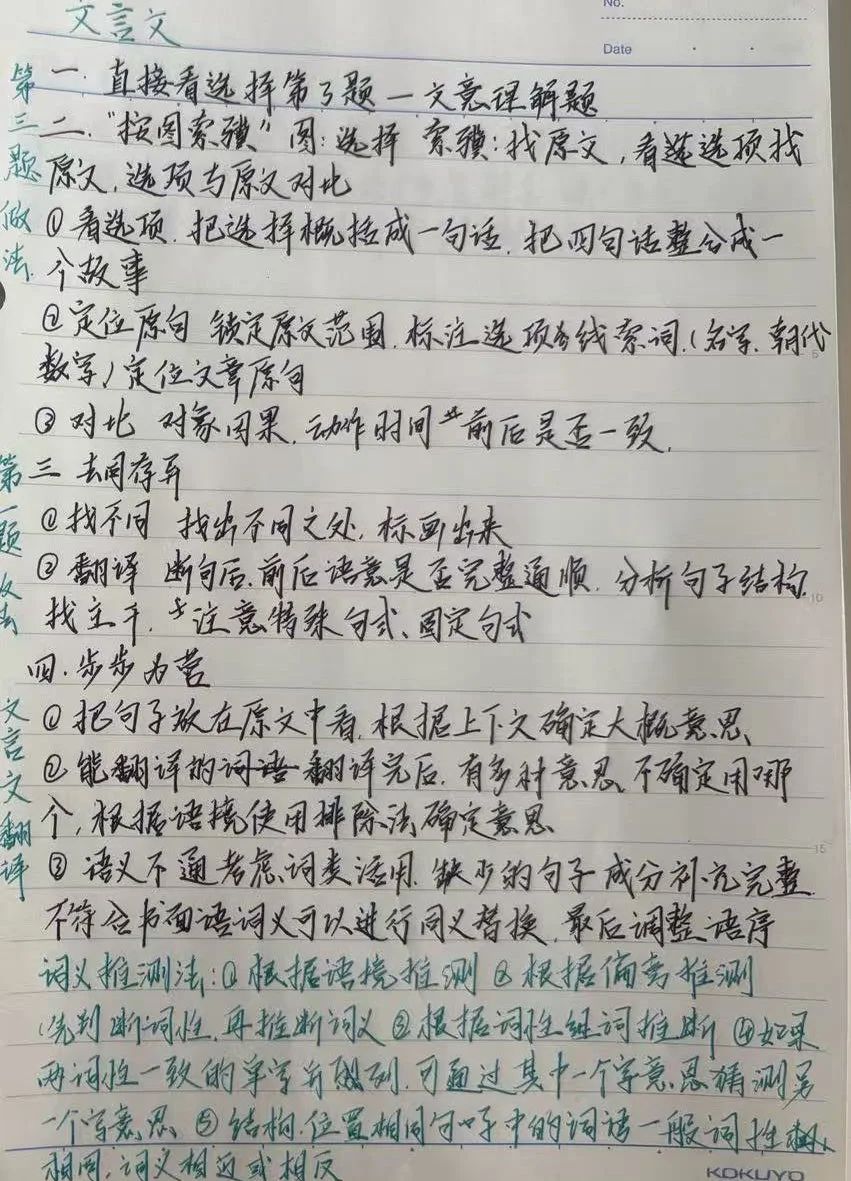 No.
Date
文言文
第三题做法
一. 直接看选择第3题一文意理解题
二."按图索骥"图:选择 索骥:找原文,看选项找
原文,选项与原文对比
①看选项.把选择概括成一句话.把四句话整合成一
个故事
②定位原句 锁定原文范围.标注选项线索词.(名字.朝代
数字)定位文章原句
③对比 对象因果.动作时间 前后是否一致.
第一题
三 去同存异
①找不同 找出不同之处.标画出来
②翻译 断句后.前后语意是否完整通顺.分析句子结构.
10
找主干. 注意特殊句式、固定句式
四.步步为营
文言文翻译
①把句子放在原文中看.根据上下文确定大概意思、
②能翻译的词语翻译完后.有多种意思、不确定用哪
个,根据语境使用排除法确定意思
15
③语义不通考虑词类活用.缺少的句子成分补充完整.
不符合书面语词义可以进行同义替换.最后调整语序
词义推测法:①根据语境推测 ②根据偏旁推测
(先判断词性.再推断词义 ③根据词性组词推断 ④如果
两词性一致的单字并列.可通过其中一个字意思猜测另
一个字意思 ⑤结构.位置相同句子中的词语一般词性
相同.词义相近或相反
KOKUYO